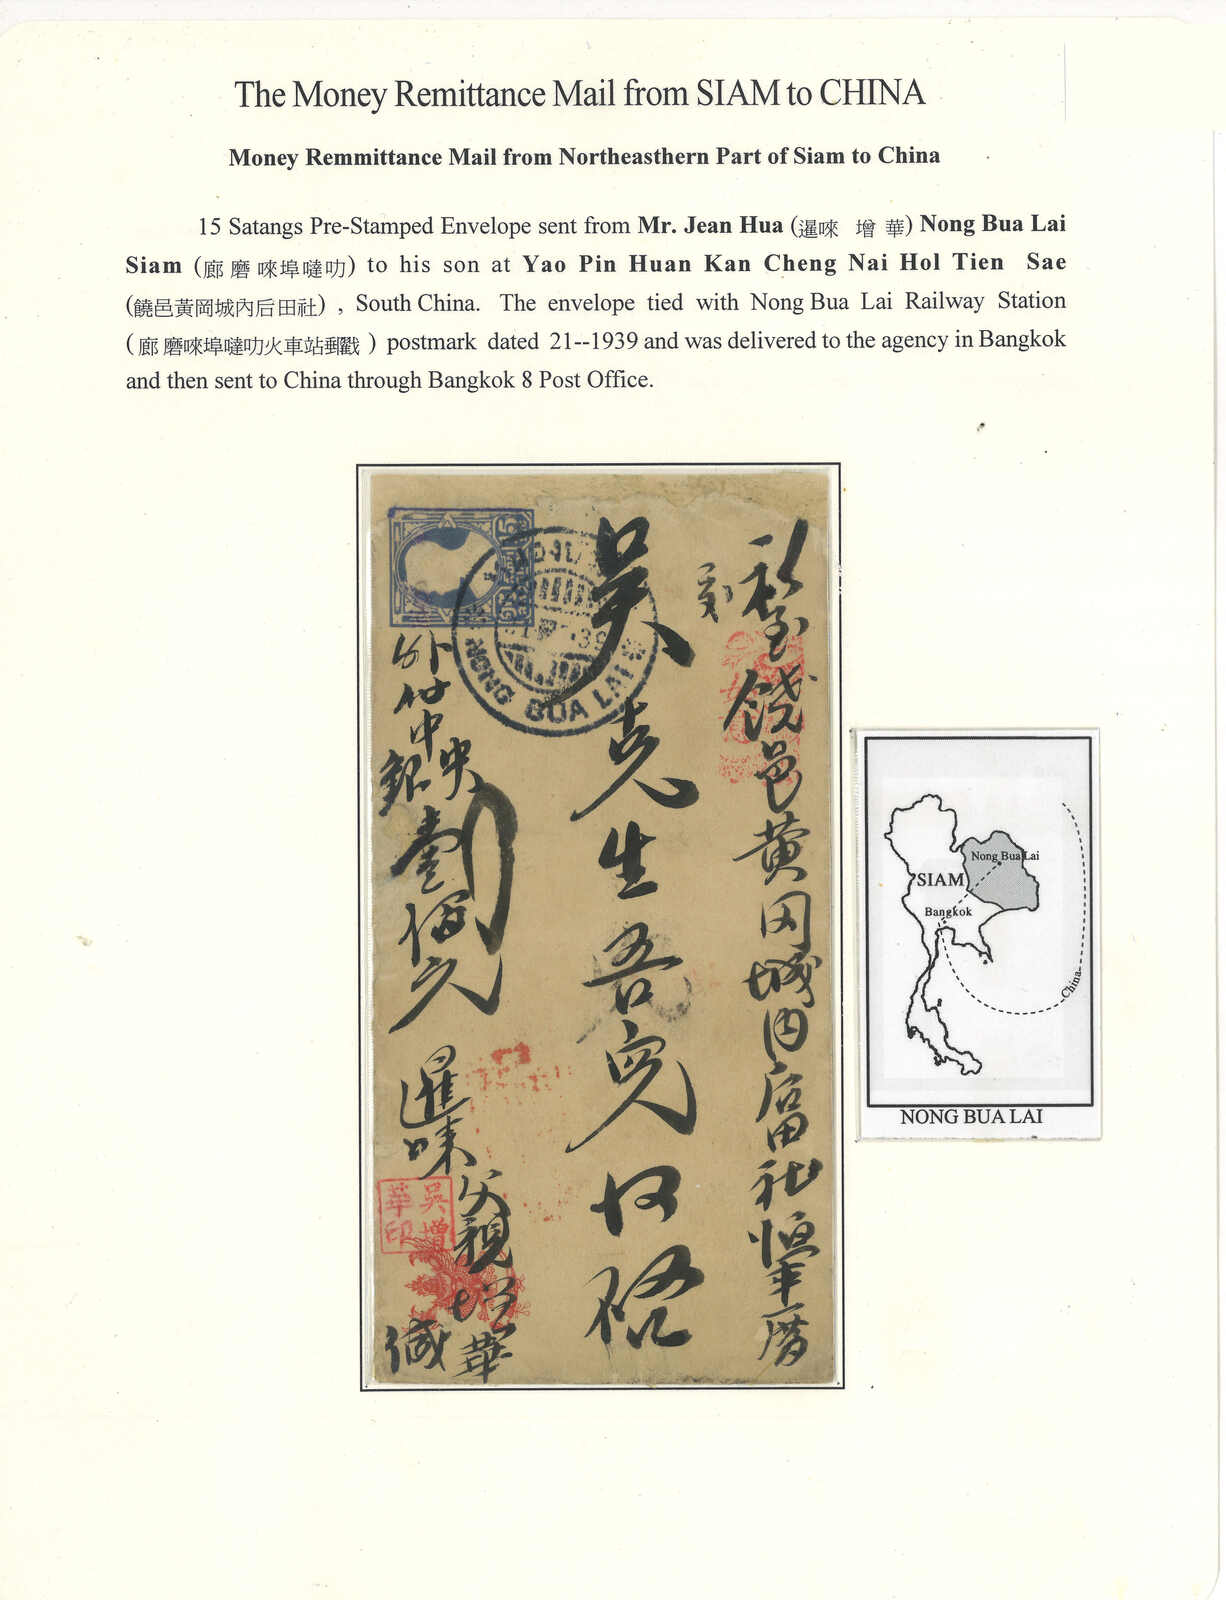 The Money Remittance Mail from SIAM to CHINA
Money Remmittance Mail from Northeasthern Part of Siam to China
15 Satangs Pre-Stamped Envelope sent from Mr. Jean Hua (暹唻 增 華) Nong Bua Lai
Siam (廊 磨 唻埠噠叻) to his son at Yao Pin Huan Kan Cheng Nai Hol Tien Sae
(饒邑黃岡城內后田社) , South China. The envelope tied with Nong Bua Lai Railway Station
(廊 磨唻埠噠叻火車站郵戳 ) postmark dated 21--1939 and was delivered to the agency in Bangkok
and then sent to China through Bangkok 8 Post Office.
饒邑黄冈城内后田社
吴
先生吾兒
外付中央
銀壹佰元
暹唻
父親增華
緘
吳增
華印
NONG BUA LAI
Nong Bua Lai
SIAM
Bangkok
China
NONG BUA LAI